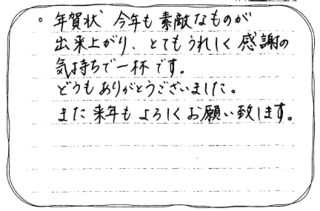 。年賀状 今年も素敵なものが
出来上がり、とてもうれしく感謝の
気持ちで一杯です。
どうもありがとうございました。
また来年もよろしくお願い致します。